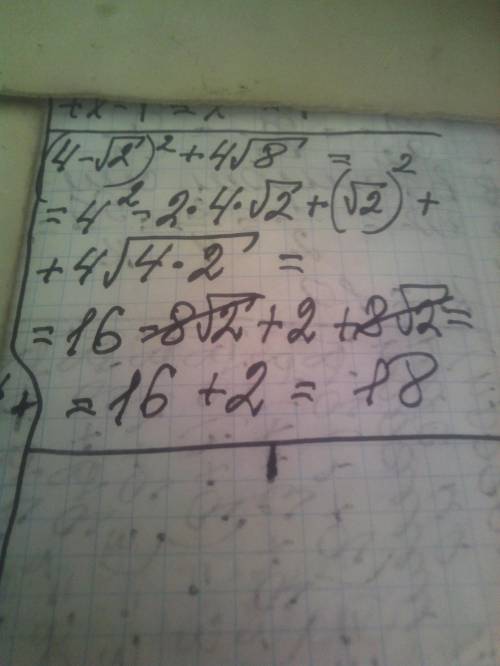 (4-√2)² + 4√8 =
= 4² - 2·4·√2 + (√2)² +
+ 4√4·2 =
= 16 - 8√2 + 2 + 8√2 =
= 16 + 2 = 18